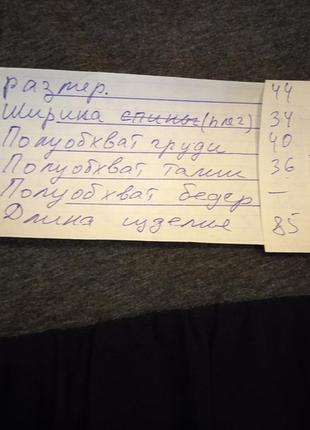 размер. 44
Ширина спины (плеч) 34
Полуобхват груди 40
Полуобхват талии 36
Полуобхват бедер —
Длина изделия 85